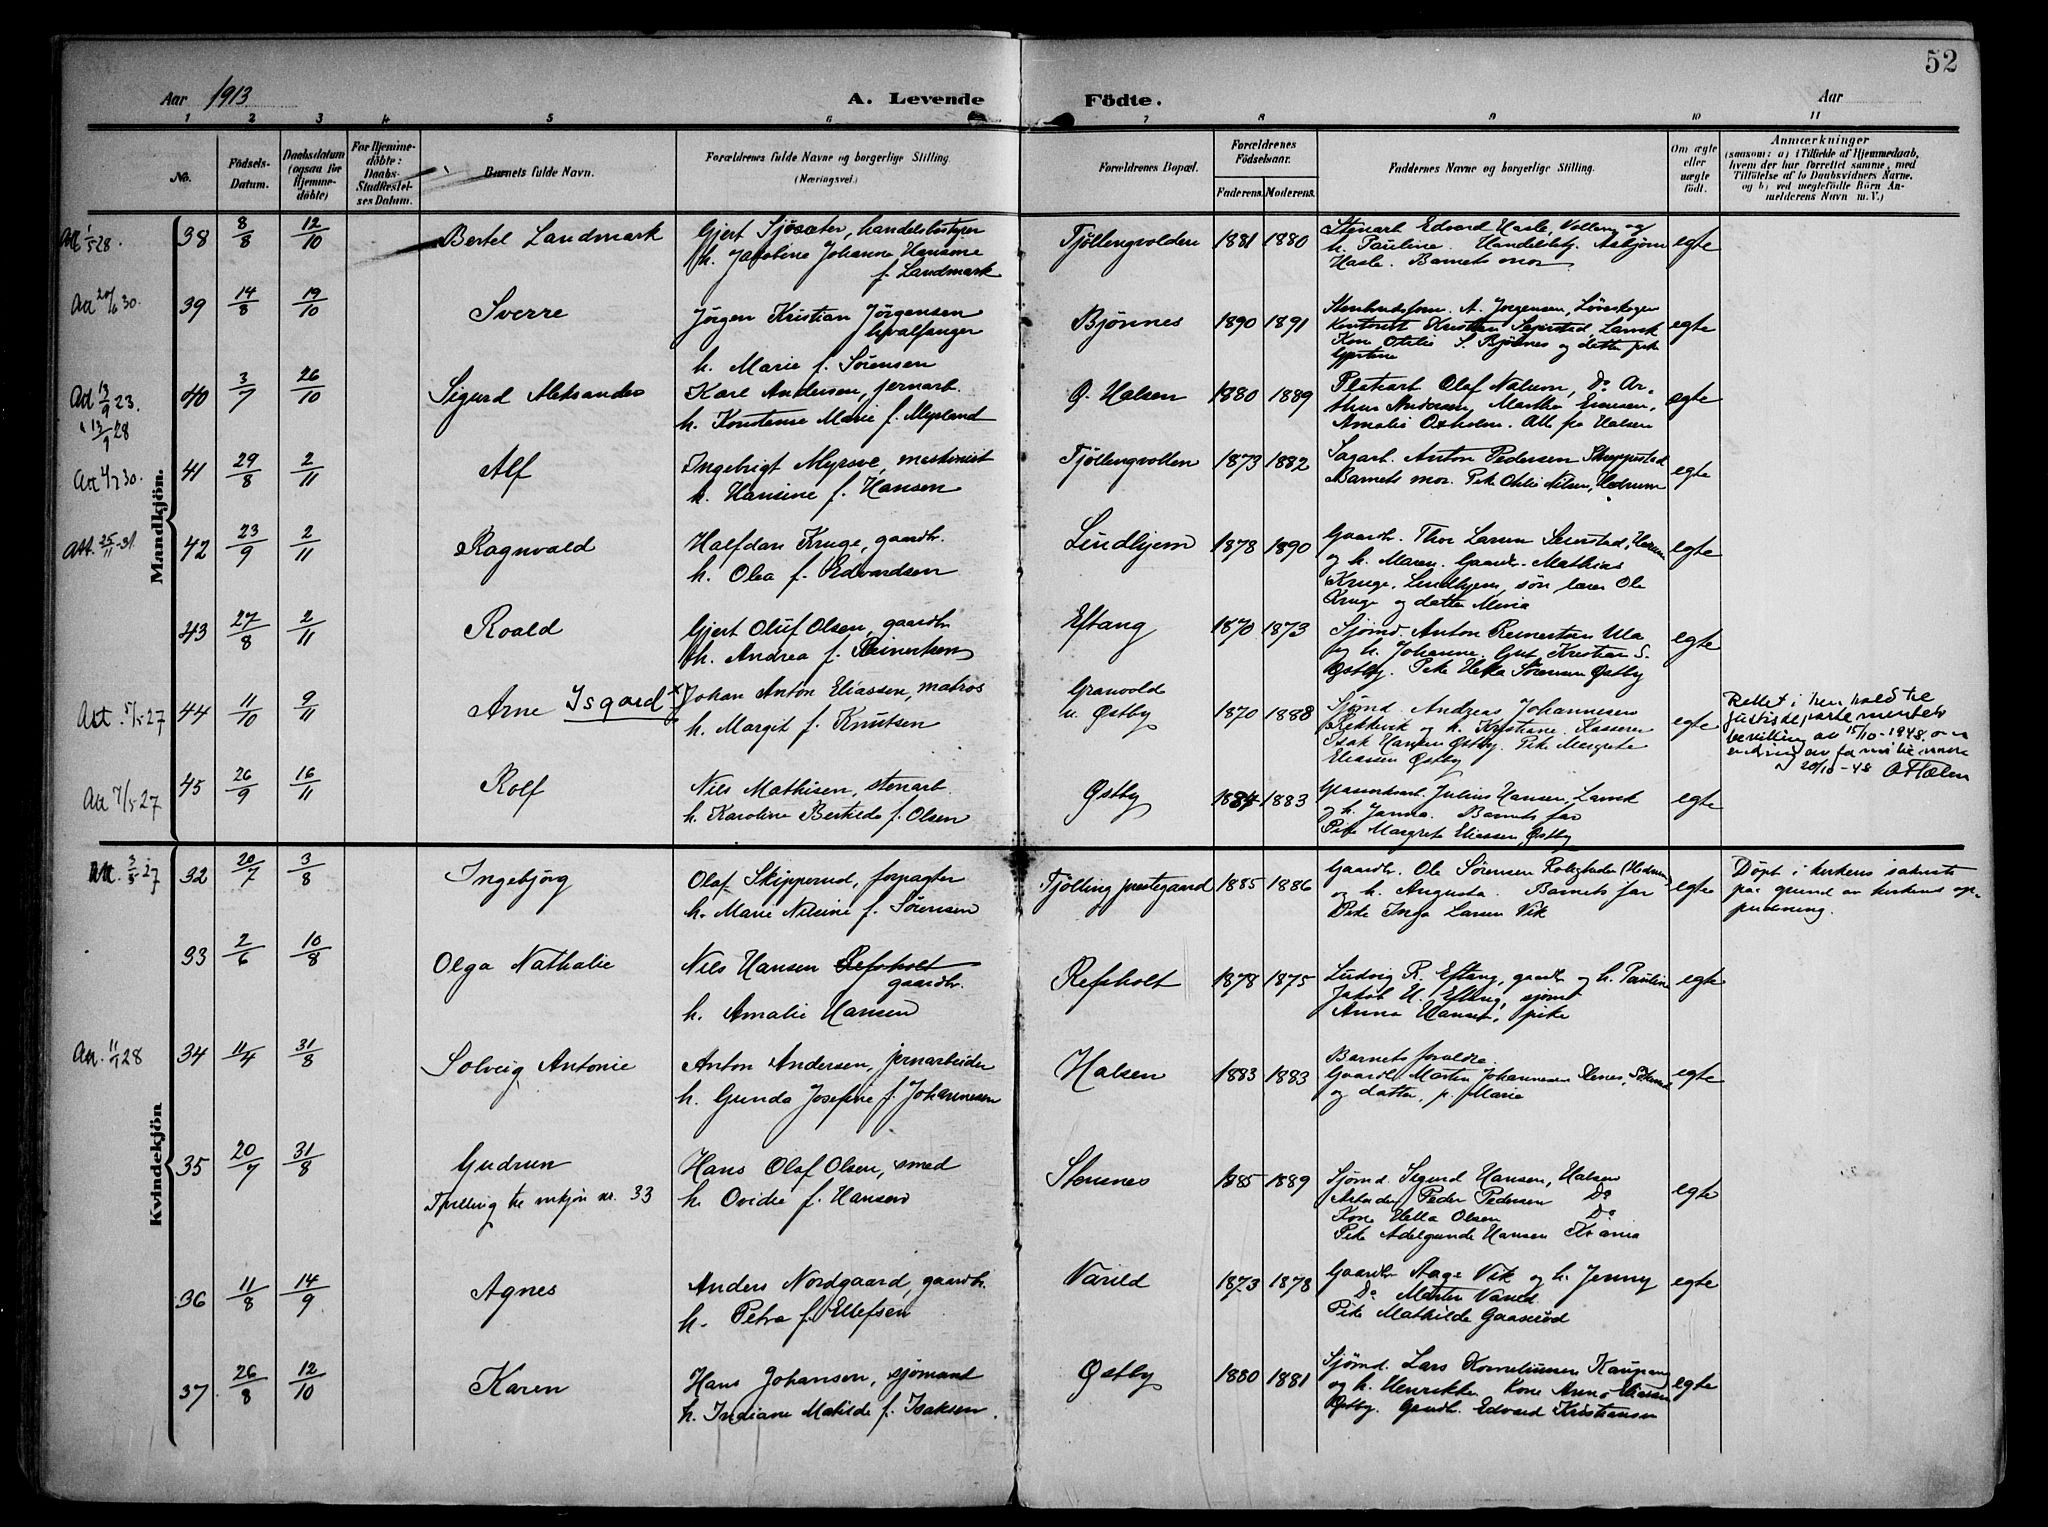 52
Aar 1913
A. Levende
Födte.
Aar
1 2 3 4 5 6 7 8 9 10 11
No.
Födsels-
Datum.
Daabsdatum
(ogsaa for
Hjemme-
döbte)
For Hjemme-
döbte:
Daabs-
Stadfæstel-
ses Datum.
Barnets fulde Navn.
Forældrenes fulde Navne og borgerlige Stilling.
(Næringsvei.)
Forældrenes Bopæl.
Forældrenes
Födselsaar.
Faderens. Moderens.
Faddernes Navne og borgerlige Stilling.
Om ægte
eller
uægte
født.
Anmærkninger
(saasom: a) i Tilfælde af Hjemmedaab,
hvem der har forrettet samme, med
Tilföielse af to Daabsvidners Navne.
og b) ved uægtefödte Börn An-
melderens Navn m. V.)
Mandkjön.
38 8/8 12/10 Bertel Landmark
Gjert Sjøsæter, handelsbestyrer
h. Jacobine Johanne Hansine
f. Landmark
Tjøllingvolden 1881 1880
Stenarb. Edvard Hasle, Volleng og
h. Pauline. Handelsbetj. Asbjørn
Hasle. Barnets mor
egte
Att 20/6 30.
39 14/8 19/10 Sverre
Jørgen Kristian Jørgensen
hvalfanger
h. Marie f. Sørensen
Bjønnes 1890 1891
egte
Att 13/9 23.
" 13/9 28
40 3/7 26/10 Sigurd Aleksander
Karl Andersen, jernarb.
h. Konstanse Marie f. Myrland
Ø. Halsen 1880 1889
Olaf Nalum, Do Ar-
thur Andersen, Martha Enersen,
Amalie Oxholm. Alle fra Halsen
egte
Att 4/7 30.
41 29/8 2/11 Alf
Ingebrigt Myrsve, maskinist
h. Hansine f. Hansen
Tjøllingvollen 1873 1882
Sagarb. Anton Pedersen
Barnets mor. Pike Otilie Nilsen, Hedrum
egte
Att. 25/11-31.
42 23/9 2/11 Ragnvald
Halfdan Kruge, gaardbr.
h. Olea f. Edvardsen
Lindhjem 1878 1890
Gaardbr. Thor Larsen
og h. Maren. Gaardbr. Mathias
Kruge, Lindhjem, søn lærer Ole
Kruge og datter Maria
egte
43 27/8 2/11 Roald
Gjert Oluf Olsen, gaardbr.
h. Andrea f. Reinertsen
Eftang 1870 1873
Sjømd. Anton Reinertsen Ula
og h. Johanne. Gut Kristian S.
Østby. Pike Helka Sørensen Østby
egte
Att. 5/5-27
44 11/10 9/11 Arne Isgard x)
Johan Anton Eliassen, matros
h. Margit f. Knutsen
Granvold
u. Østby 1870 1888
Sjømd. Andreas Johannesen
Rekkevik og h. Kristiane. Kasserer
Isak Hansen Østby. Pike Margrete
Eliassen Østby
egte
Rettet i hen hold til
justisdepartementets
bevilling av 15/10-1948 om
endring av familienavn
20/10-48
Att 7/5-27
45 26/9 16/11 Rolf
Nils Mathisen, stenarb.
h. Karoline Bertilde f. Olsen
Østby 1884 1883
Julius Hansen, Larvik
og h. Janna. Barnets far
Pike Margrete Eliassen, Østby
egte
Kvindekjön
Att. 3/5-27
32 20/7 3/8 Ingebjørg
Olaf Skipperud, forpagter
h. Marie Nilsine f. Sørensen
Tjølling prestegaard 1885 1886
Gaardbr. Ole Sørensen Rolighaden (Hedrum)
og h. Augusta. Barnets far
Pike Inga Larsen Vik
egte
Døpt i kirkens sakristi
paa grund av kirkens op-
pudsning.
33 2/6 10/8 Olga Nathalie
Nils Hansen Refsholt
gaardbr.
h. Amalie Hansen
Refsholt 1878 1875
Ludvig R. Eftang, gaardbr og h. Pauline
Jakob H. Eftang, sjømd
Anna Hansen, pike
egte
34 11/4 31/8 Solveig Antonie
Anton Andersen, jernarbeider
h. Gunda Josefine f. Johannesen
Halsen 1883 1883
Barnets foreldre.
Gaardbr. Martin Johannesen
og datter, p. Marie
egte
35 20/7 31/8 Gudrun
Tvilling til mkjøn nr. 33
Hans Olaf Olsen, smed
h. Ovidie f. Hansen
Stensnes 1885 1889
Sjømd. Sigurd Hansen, Halsen
Arbeider Peder Pedersen Do
Kone Hella Olsen Do
Pike Adelgunde Hansen Kr.ania
egte
36 11/8 14/9 Agnes
Anders Nordgaard, gaardbr.
h. Petra f. Ellefsen
Varild 1873 1878
Gaardbr Aage Vik og h. Jenny
Do Martin Varild
Pike Mathilde Gaaserød
egte
37 26/8 12/10 Karen
Hans Johansen, sjømand
h. Indiane Matilde f. Isaksen.
Østby 1880 1881
Sjømd. Lars Korneliussen Kaupang
og h. Henrikke. Kone Anna Eliassen
Østby. Gaardbr. Edvard Kristiansen
egte